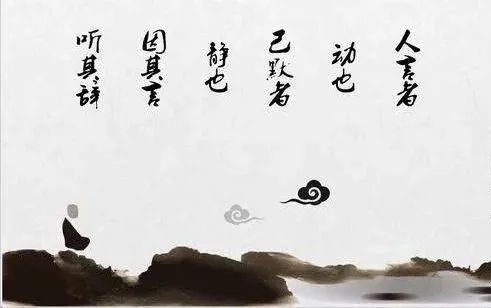 人言者
动也
己默者
静也
因其言
听其辞